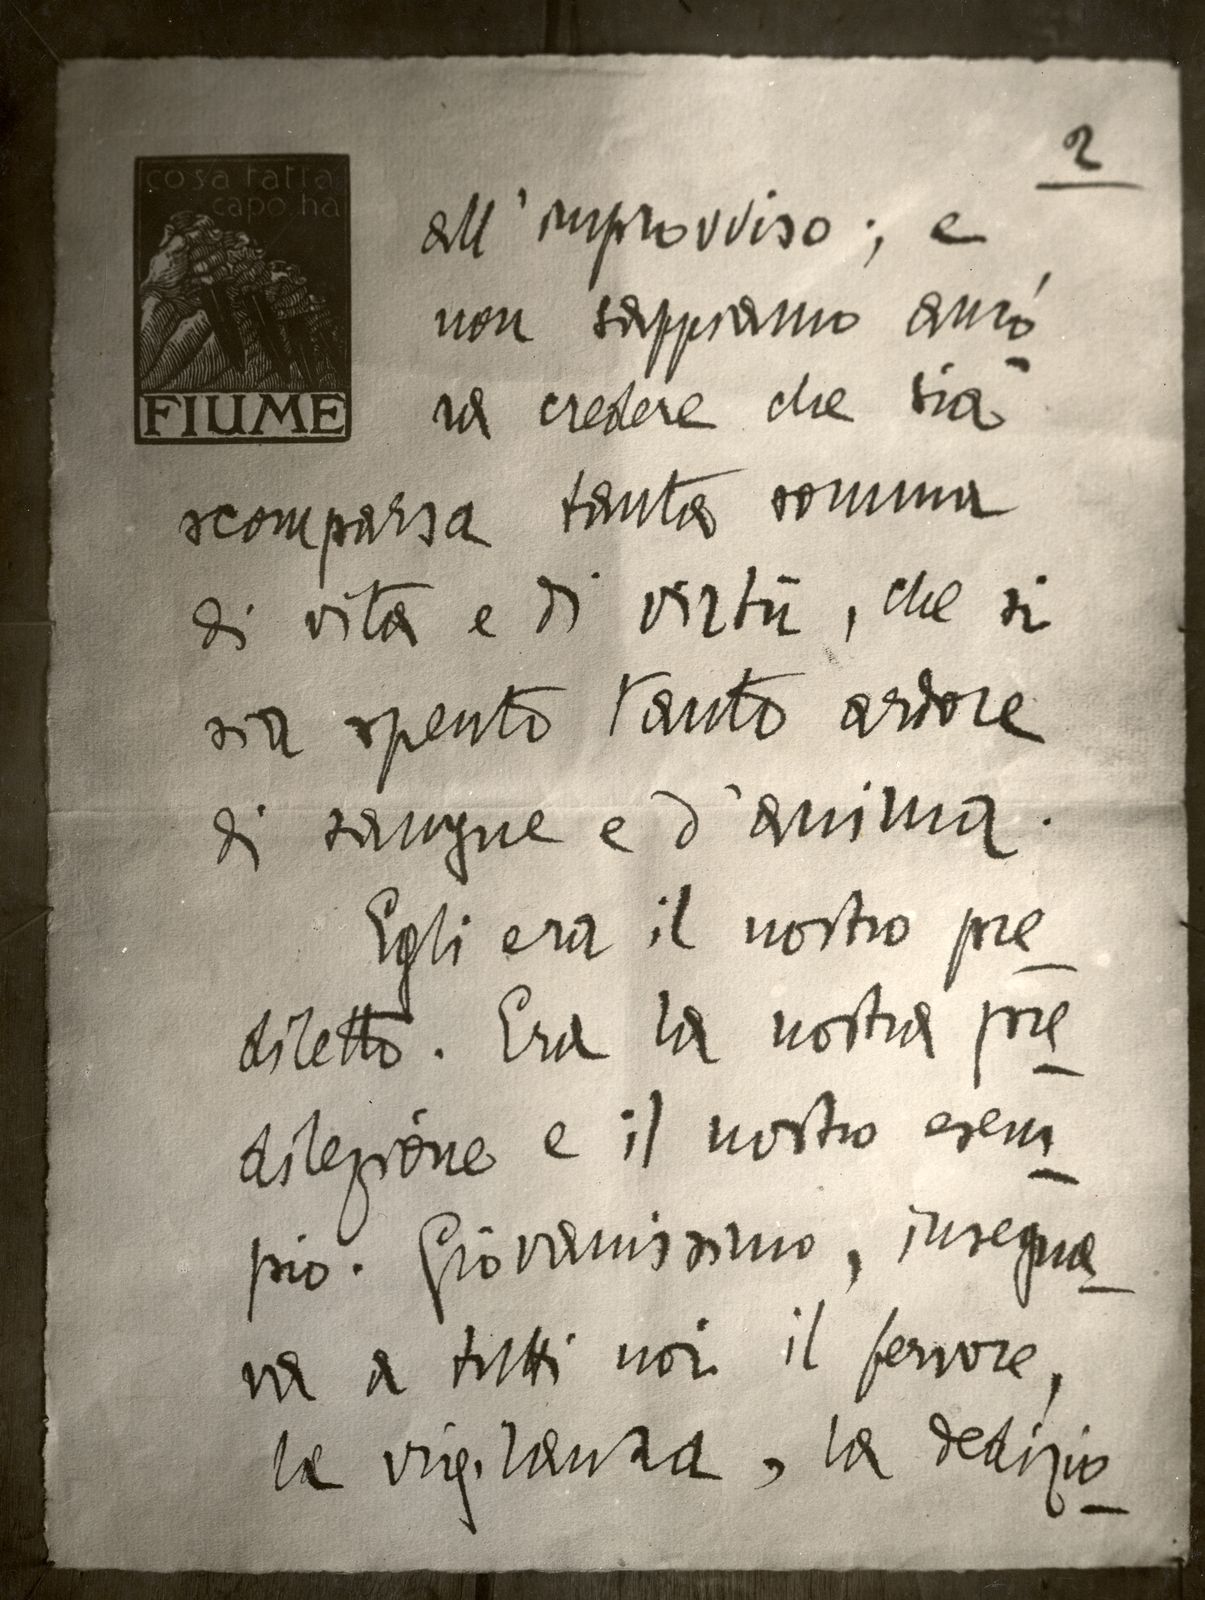 2
cosa fatta
capo ha
FIUME
all'improvviso; e
non sappiamo anco
ra credere che sia
scomparsa tanta somma
di vita e di virtù, che si
sia spento tanto ardore
di sangue e d'anima.
Egli era il nostro pre
diletto. Era la nostra pre
dilezione e il nostro esem
pio. Giovanissimo, insegna
va a tutti noi il fervore,
la vigilanza, la dedizio